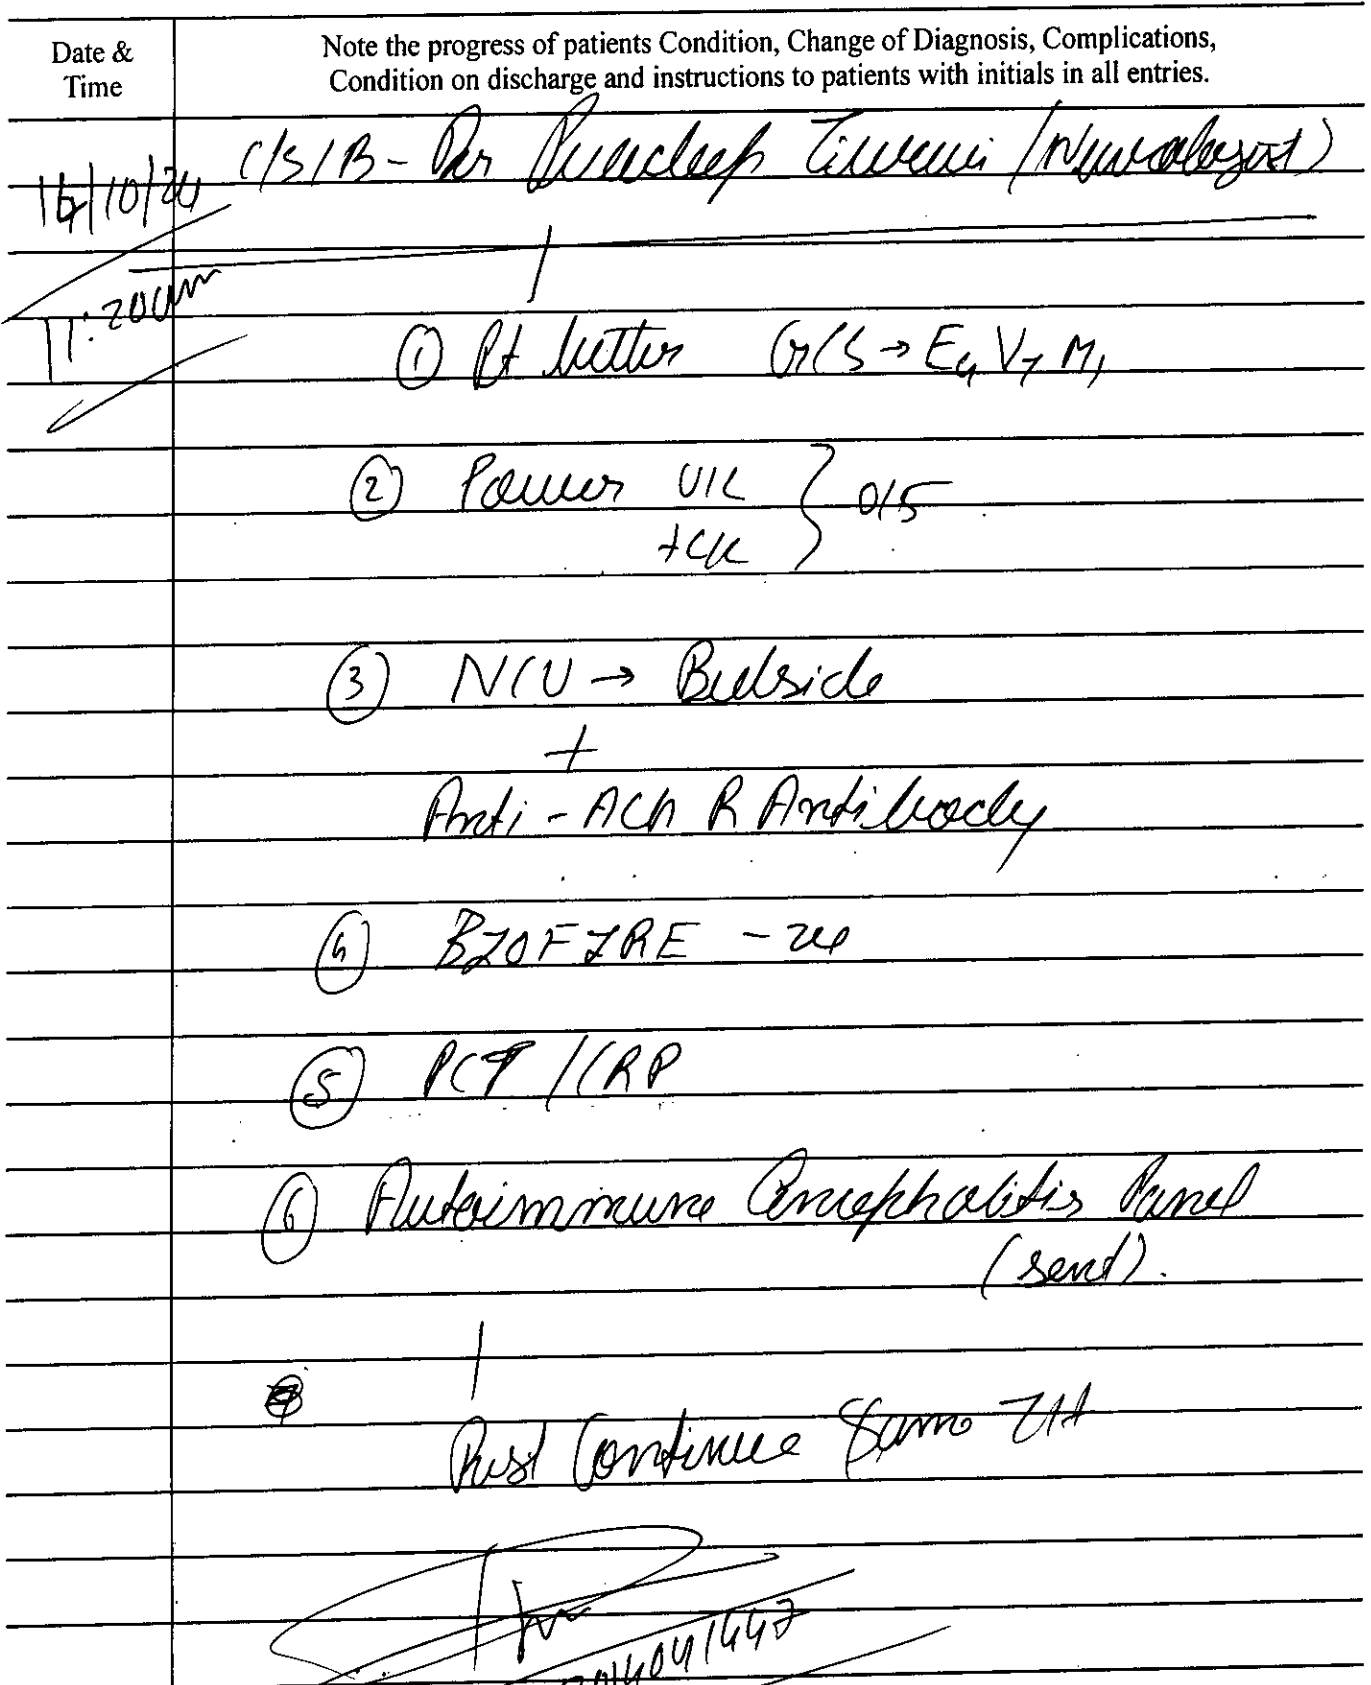 Date &
Time
Note the progress of patients Condition, Change of Diagnosis, Complications,
Condition on discharge and instructions to patients with initials in all entries.
C/S/B - Dr Tiwari (Neurologist)
/10/24
11:20am
① Pt better GCS → E4 VT M1
② Power U/L
+ L/L } 0/5
③ NCV → Bedside
+
Anti - ACh R Antibody
④ BIOFIRE -
⑤ PCT / CRP
⑥ Autoimmune Encephalitis Panel
(send).
Rest Continue Same